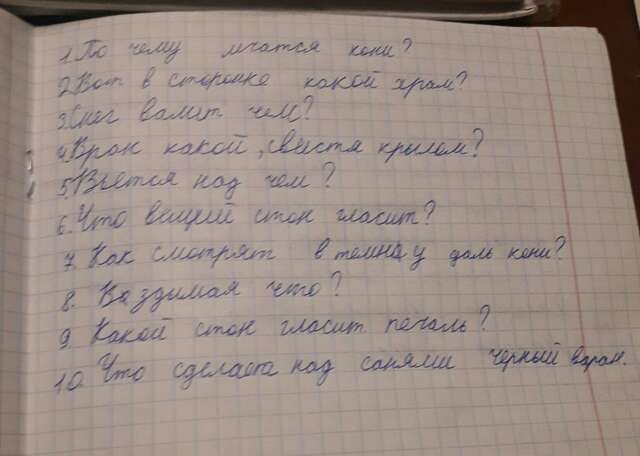 1. По чему мчатся кони?
2. Вот в сторонке какой храм?
3. Снег валит чем?
4. Вран какой, свистя крылом?
5. Вьётся над чем?
6. Что вещий стон гласит?
7. Как смотрят в темную даль кони?
8. Воздымая что?
9. Какой стон гласит печаль?
10. Что сделает над санями черный варан.